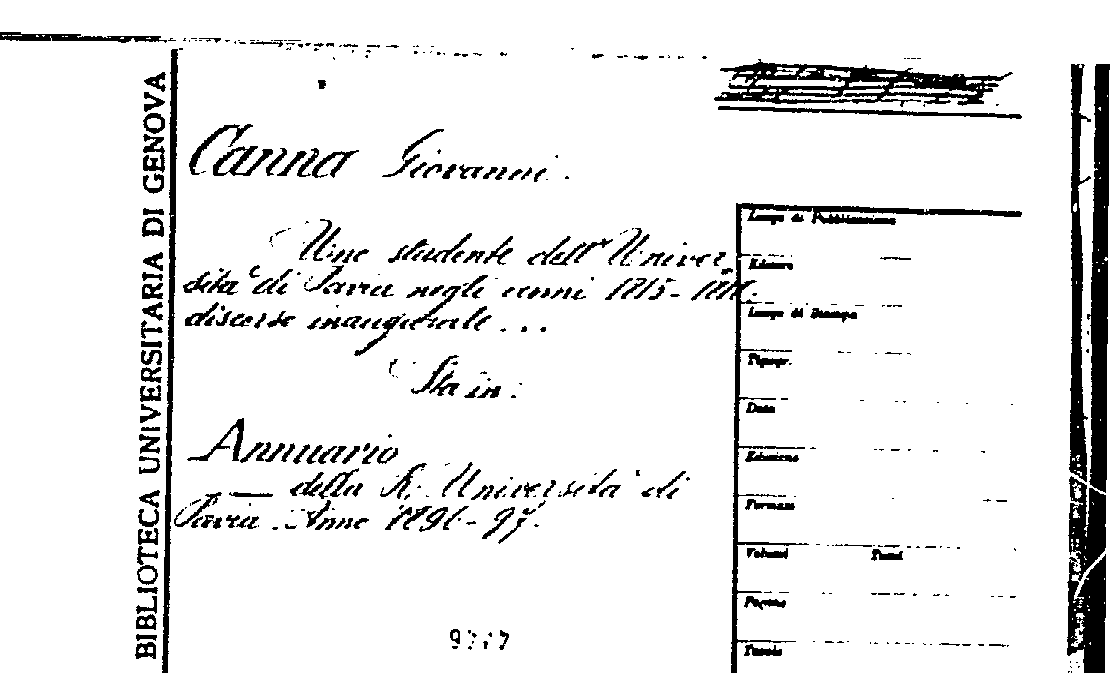 BIBLIOTECA UNIVERSITARIA DI GENOVA
Canna Giovanni.
Uno studente dell' Univer
sità di Pavia negli anni 1815-
discorso inaugurale ...
Sta in:
Annuario
— della R. Università di
Pavia. Anno 1896-97.
Luogo di Pubblicazione
Editore
Luogo di Stampa
Tipogr.
Data
Edizione
Formato
Volumi Tomi
Pagine
Tavole